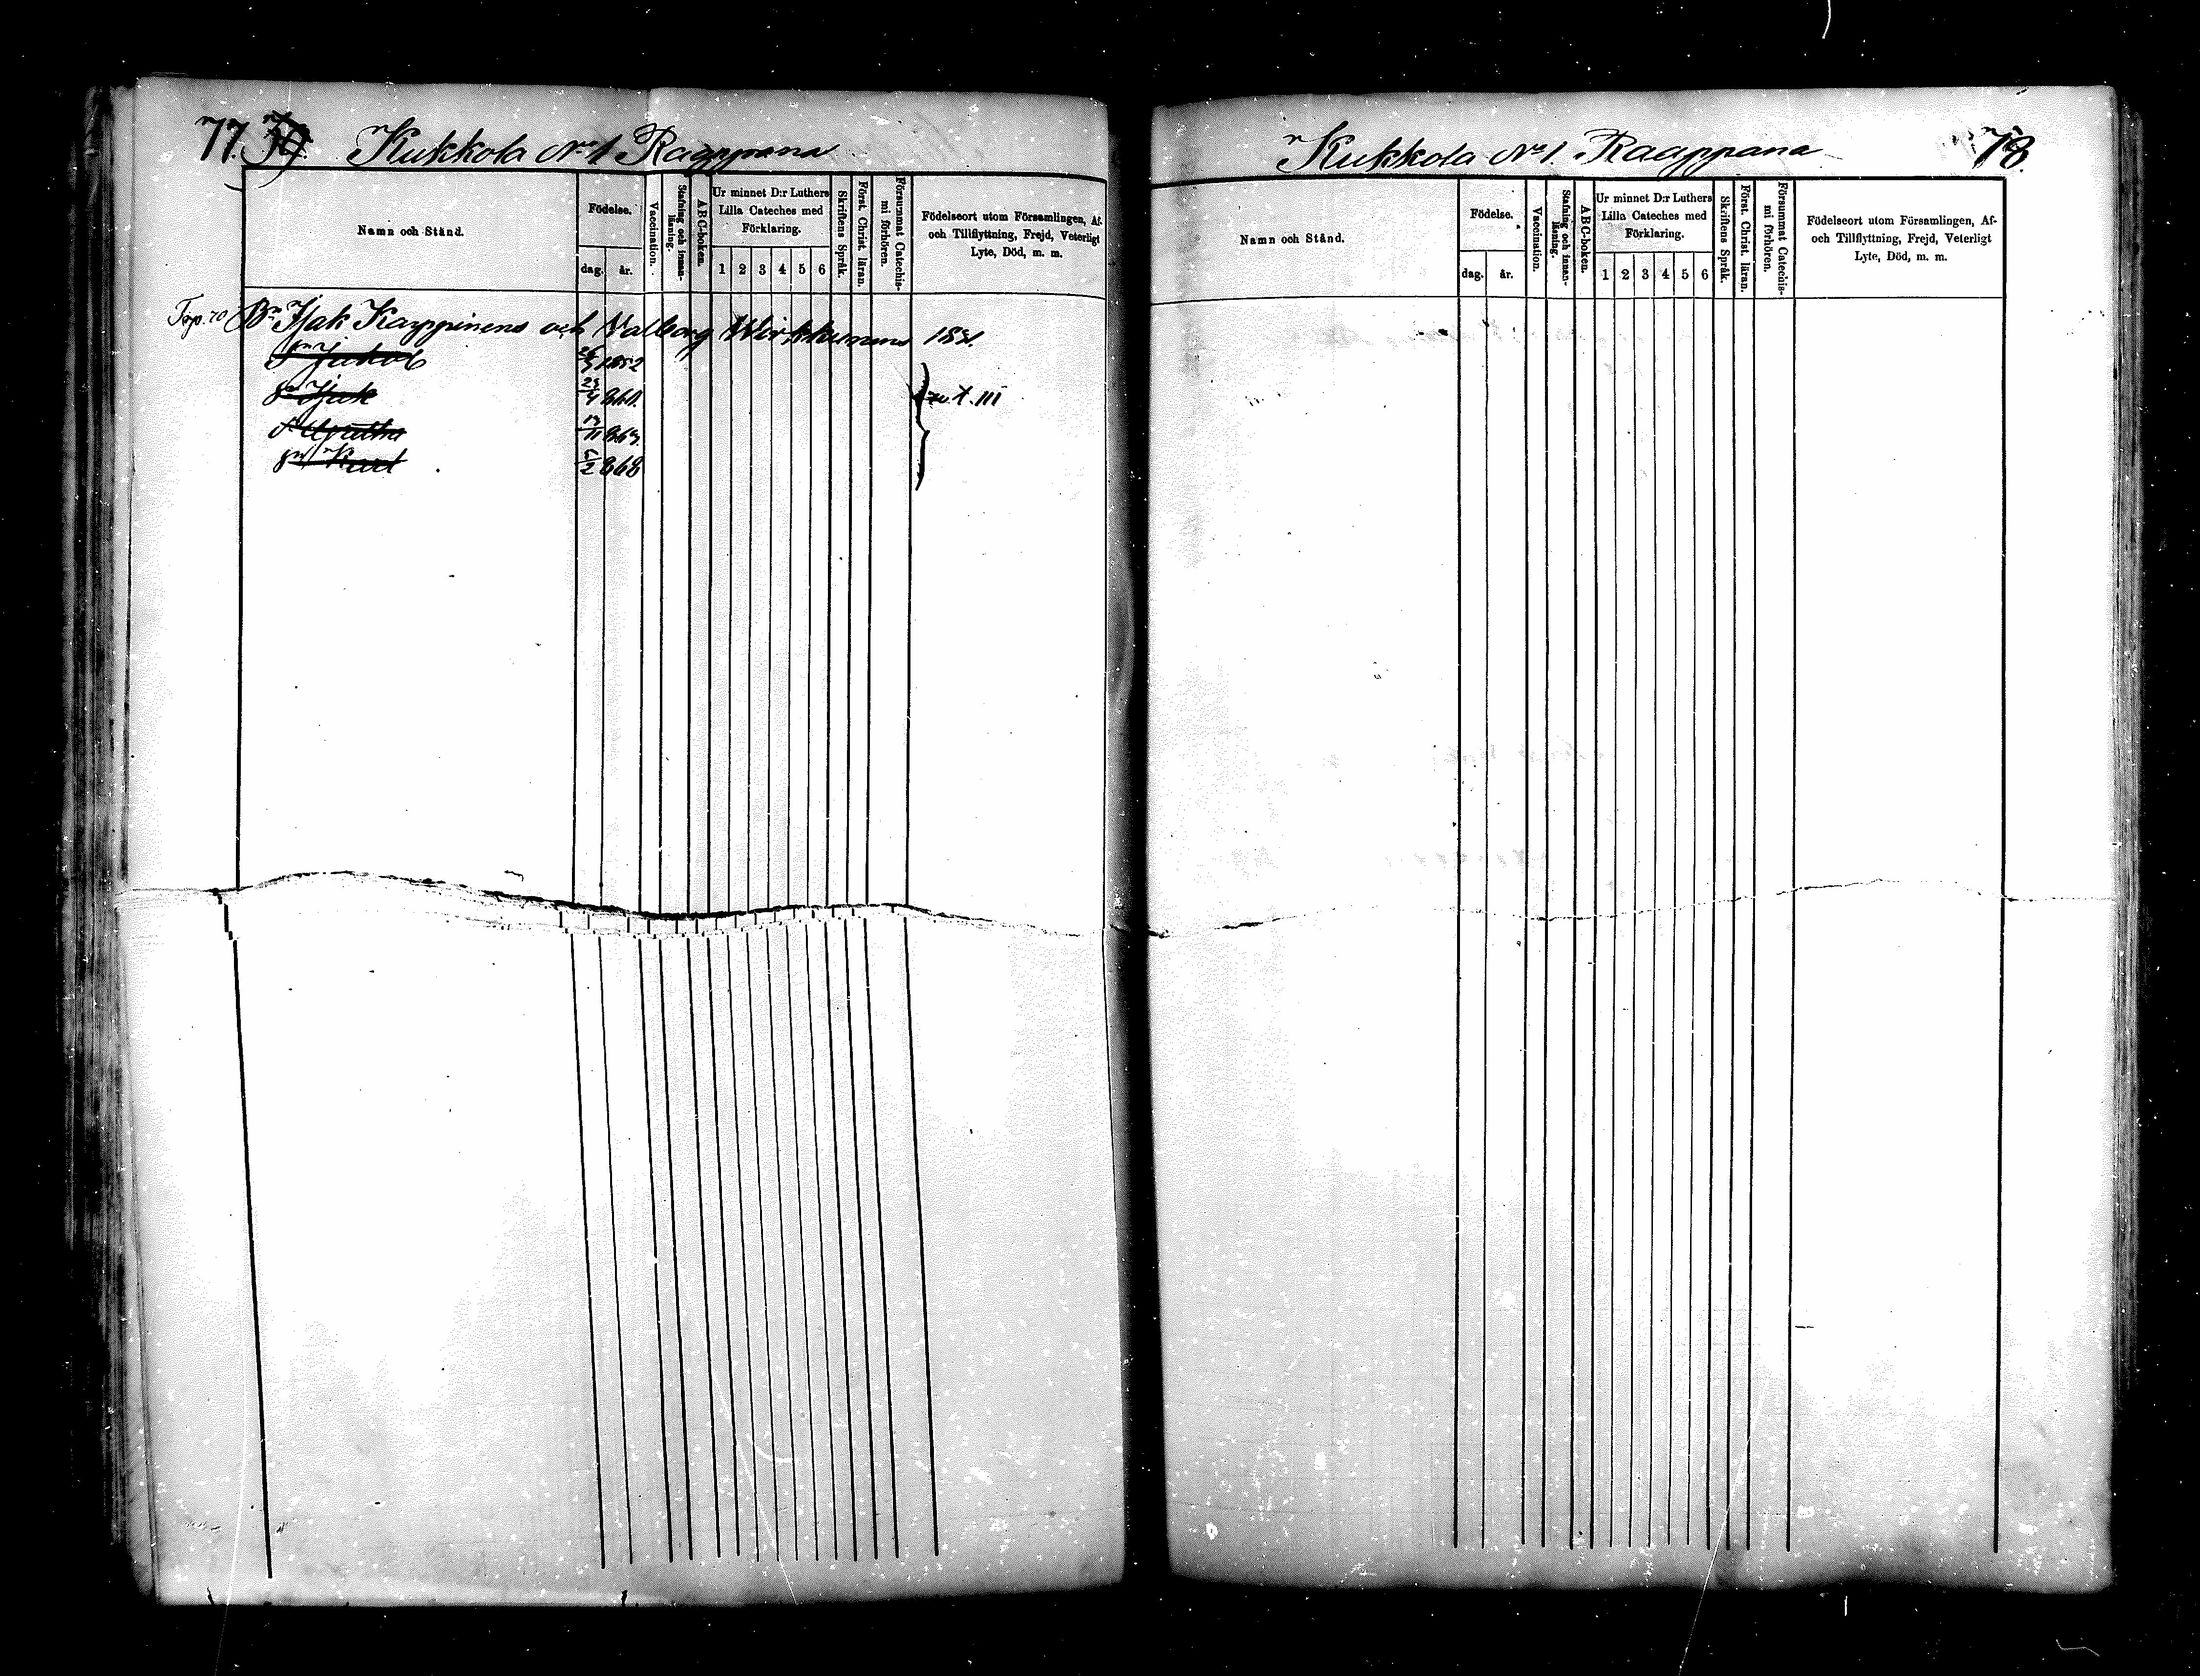 77. 39 Kukkola No 1 Raappana
Namn och Stånd.
Födelse.
dag.
år.
Vaccination.
Stafning och innan-
läsning.
ABC-boken.
Ur minnet D:r Luthers
Lilla Cateches med
Förklaring.
1 2 3 4 5 6
Skriftens Språk.
Först. Christ. läran.
Försummat Catechis-
mi förhören.
Födelseort utom Församlingen, Af-
och Tillflyttning, Frejd, Veterligt
Lyte, Död, m. m.
Isak Karppinens och Valborg Wirkkunens 181.
Jakob 1852
Isak 23/4 861.
Agatha 13/11 863.
Karl 5/2 868
III
Kukkola No 1. Raappana 78.
Namn och Stånd.
Födelse.
dag.
år.
Vaccination.
Stafning och innan-
läsning.
ABC-boken.
Ur minnet D:r Luthers
Lilla Cateches med
Förklaring.
1 2 3 4 5 6
Skriftens Språk.
Först. Christ. läran.
Försummat Catechis-
mi förhören.
Födelseort utom Församlingen, Af-
och Tillflyttning, Frejd, Veterligt
Lyte, Död, m. m.